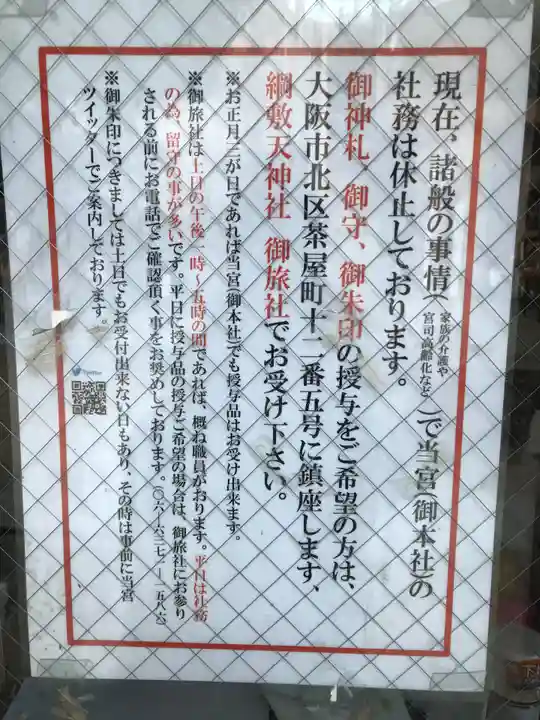 現在、諸般の事情(家族の介護や宮司高齢化など)で当宮(御本社)の
社務は休止しております。
御神札、御守、御朱印の授与をご希望の方は、
大阪市北区茶屋町十二番五号に鎮座します、
綱敷天神社 御旅社でお受け下さい。
※お正月三が日であれば当宮(御本社)でも授与品はお受け出来ます。
※御旅社は土日の午後一時~五時の間であれば、概ね職員がおります。平日は社務
の為、留守の事が多いです。平日に授与品の授与ご希望の場合は、御旅社にお参り
される前にお電話でご確認頂く事をお奨めしております。(〇六-六三七一-一五八六)
※御朱印につきましては土日でもお受付出来ない日もあり、その時は事前に当宮
ツイッターでご案内しております。
Twitter